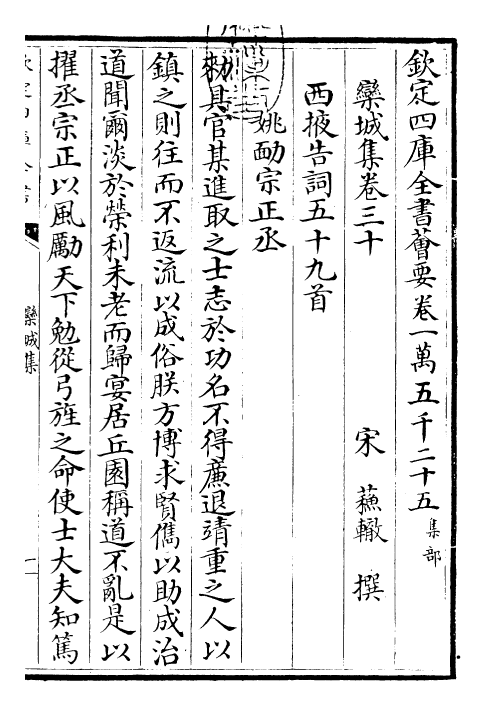 欽定四庫全書薈要卷一萬五千二十五 集部
欒城集卷三十 宋 蘓轍 撰
西掖告詞五十九首
姚勔宗正丞
勑具官某進取之士志於功名不得廉退靖重之人以
鎮之則往而不返流以成俗朕方博求賢儁以助成治
道聞爾淡於榮利未老而歸宴居丘園稱道不亂是以
擢丞宗正以風勵天下勉從弓旌之命使士大夫知篤
欒城集
一